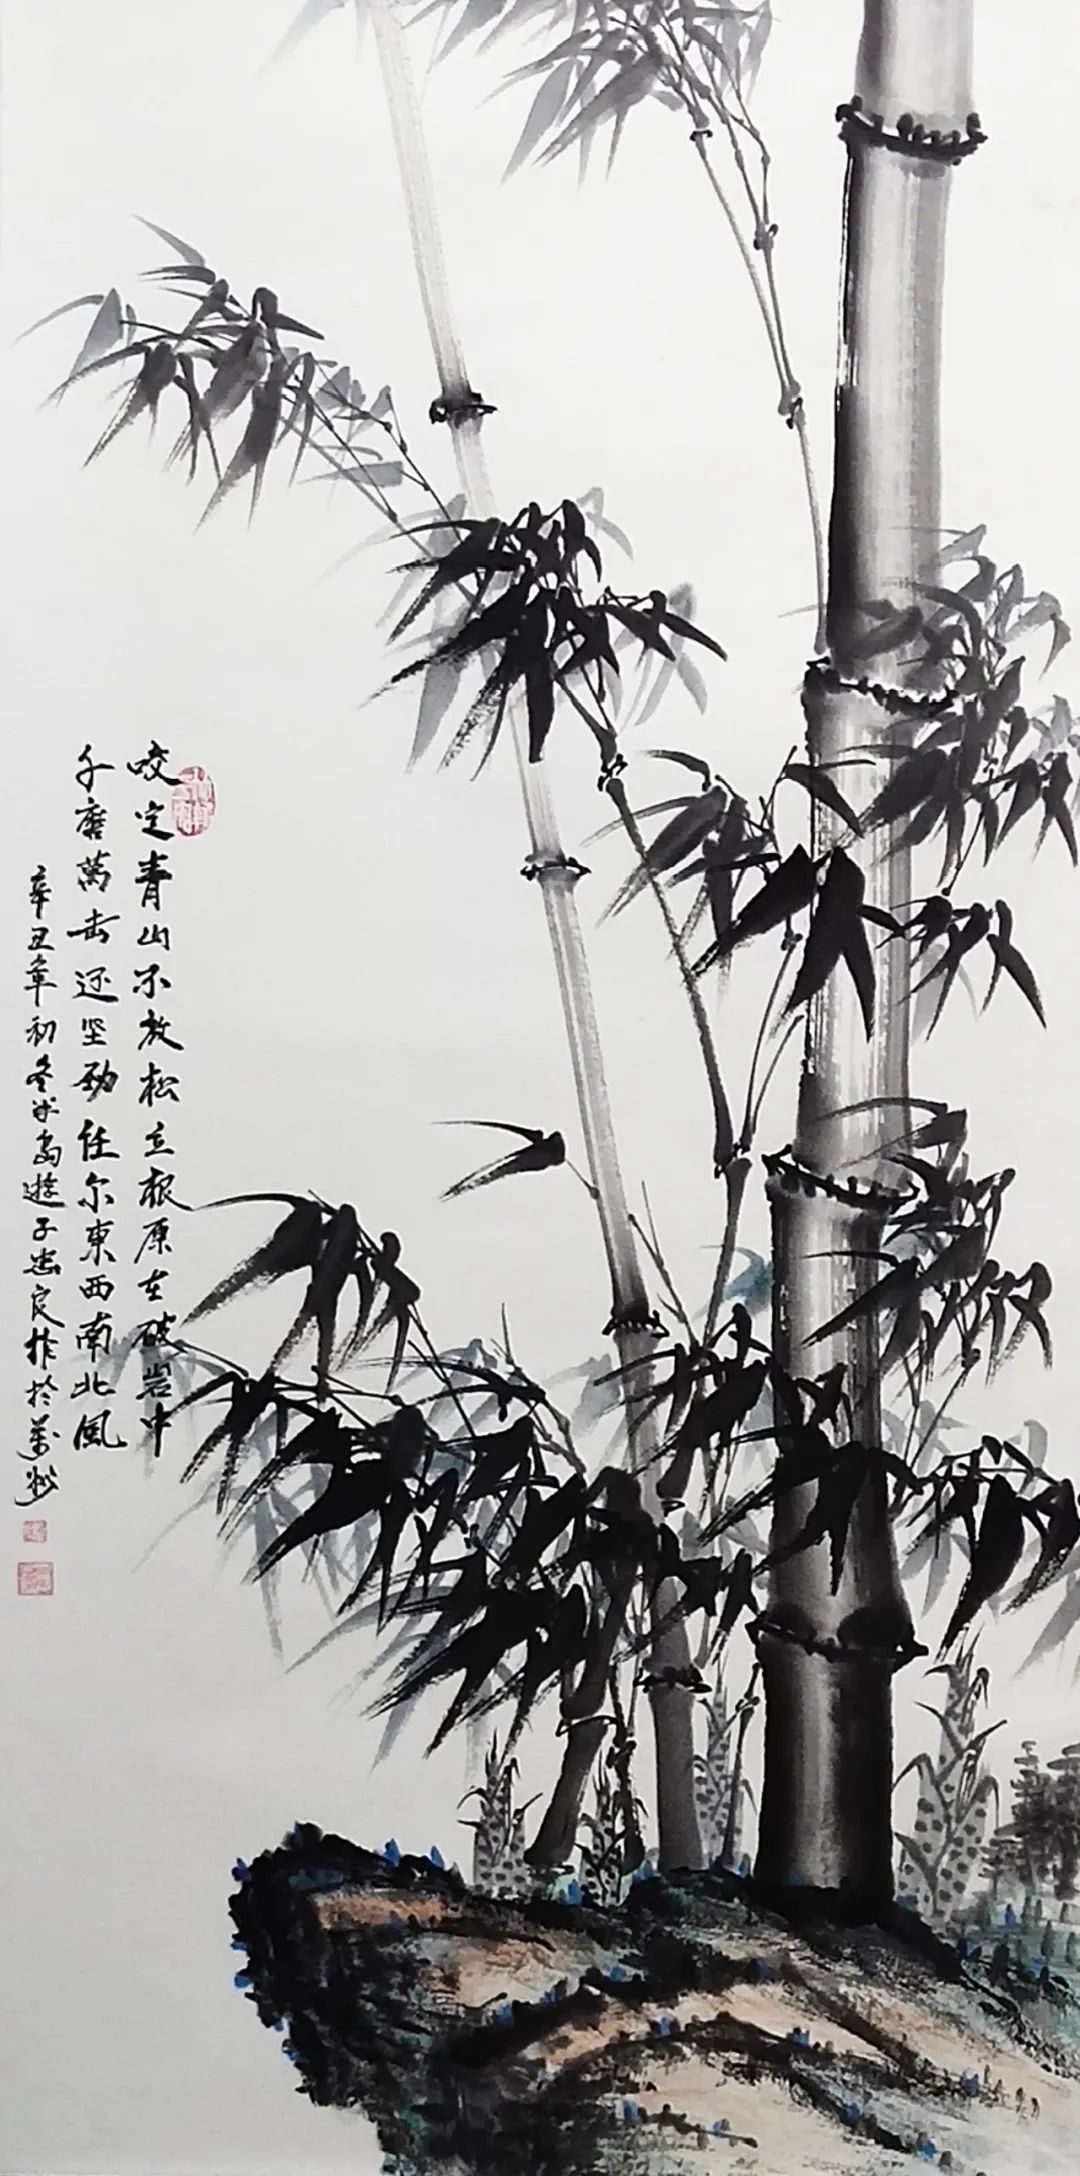 咬定青山不放松立根原在破岩中
千磨萬击还坚劲任尔東西南北風
辛丑年初冬半岛遊子忠良作於萬州